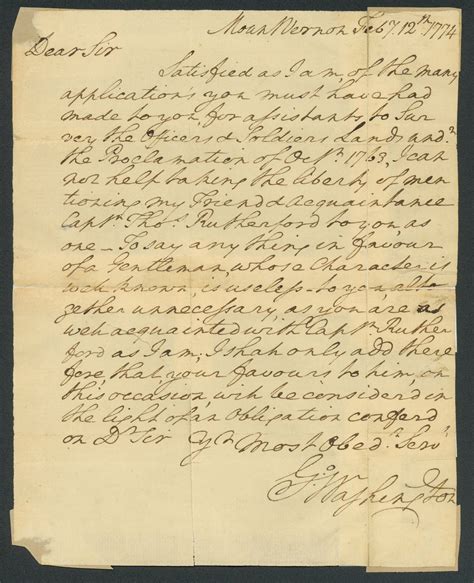 Mount Vernon Feby. 12th. 1774
Dear Sir
Satisfied as I am, of the many
applications you must have had
made to you, for assistants to Sur
vey the Officers & Soldiers Lands undr.
the Proclamation of Octr. 1763, I can
not help taking the liberty of men
tioning my Friend & Acquaintance
Captn. Thos. Rutherford to you, as
one – To say any thing in favour
of a Gentleman, whose Character is
well known, is useless – to you, alto
gether unnecessary, as you are as
well acquainted with Captn. Ruther
ford as I am; I shall only add there
fore, that your favours to him, on
this occasion will be considerd in
the light of an Obligation conferd
on Dr. Sir Yr. Most Obedt. Servt.
Go: Washington